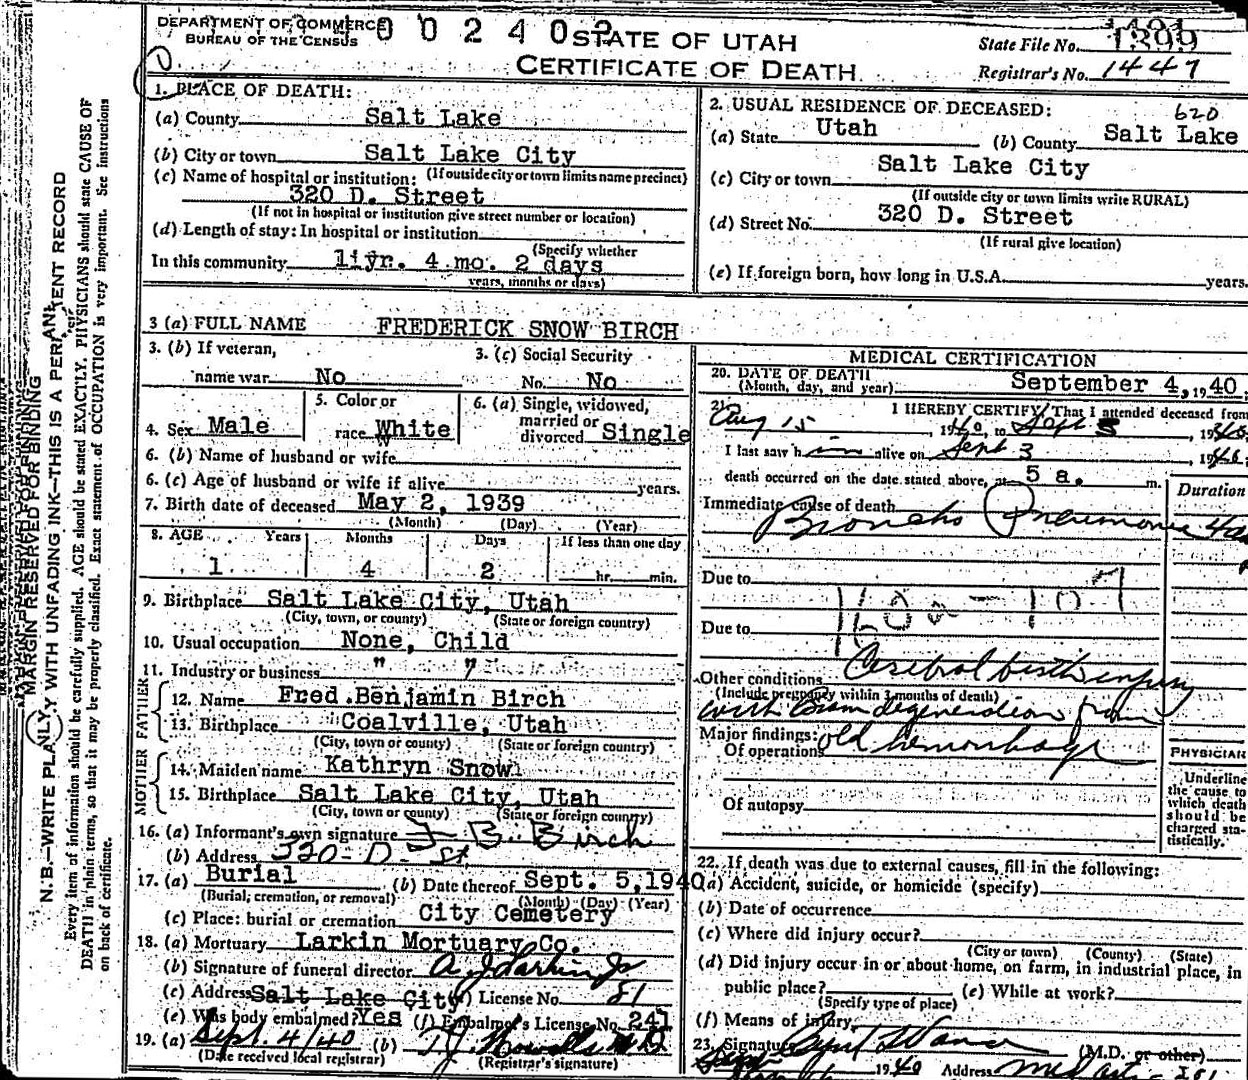 DEPARTMENT OF COMMERCE
BUREAU OF THE CENSUS
0 0 2 4 0 2
STATE OF UTAH
CERTIFICATE OF DEATH
State File No. 1399
Registrar's No. 1447
1. PLACE OF DEATH:
(a) County Salt Lake
(b) City or town Salt Lake City
(If outside city or town limits name precinct)
(c) Name of hospital or institution:
320 D. Street
(If not in hospital or institution give street number or location)
(d) Length of stay: In hospital or institution
(Specify whether
In this community 1 yr. 4 mo. 2 days
years, months or days)
2. USUAL RESIDENCE OF DECEASED:
620
(a) State Utah (b) County Salt Lake
(c) City or town Salt Lake City
(If outside city or town limits write RURAL)
(d) Street No. 320 D. Street
(If rural give location)
(e) If foreign born, how long in U.S.A. years.
3 (a) FULL NAME FREDERICK SNOW BIRCH
3. (b) If veteran,
name war No
3. (c) Social Security
No. No
4. Sex Male
5. Color or
race White
6. (a) Single, widowed,
married or
divorced Single
6. (b) Name of husband or wife
6. (c) Age of husband or wife if alive years.
7. Birth date of deceased May 2, 1939
(Month) (Day) (Year)
8. AGE Years Months Days If less than one day
1 4 2 hr. min.
9. Birthplace Salt Lake City, Utah
(City, town, or county) (State or foreign country)
10. Usual occupation None, Child
11. Industry or business " "
FATHER
12. Name Fred Benjamin Birch
13. Birthplace Coalville, Utah
(City, town or county) (State or foreign country)
MOTHER
14. Maiden name Kathryn Snow
15. Birthplace Salt Lake City, Utah
(City, town or county) (State or foreign country)
16. (a) Informant's own signature F. B. Birch
(b) Address 320 - D - St
17. (a) Burial (b) Date thereof Sept. 5, 1940
(Burial, cremation, or removal) (Month) (Day) (Year)
(c) Place: burial or cremation City Cemetery
18. (a) Mortuary Larkin Mortuary Co.
(b) Signature of funeral director A. J. Larkin Jr
(c) Address Salt Lake City License No. 81
(e) Was body embalmed? Yes (f) Embalmer's License No. 241
19. (a) Sept. 4/40 (b)
(Date received local registrar) (Registrar's signature)
MEDICAL CERTIFICATION
20. DATE OF DEATH
(Month, day, and year) September 4, 1940
21. I HEREBY CERTIFY, That I attended deceased from
Aug 15, 1940, to Sept 3, 1940
I last saw him alive on Sept 3, 1940
death occurred on the date stated above, at 5 a. m.
Duration
Immediate cause of death
Broncho Pneumonia
Due to
Due to
Other conditions Cerebral birth injury
(Include pregnancy within 3 months of death)
with Brain degeneration from
Major findings: old hemorrhage
Of operations
Of autopsy
PHYSICIAN
Underline
the cause to
which death
should be
charged sta-
tistically.
22. If death was due to external causes, fill in the following:
(a) Accident, suicide, or homicide (specify)
(b) Date of occurrence
(c) Where did injury occur?
(City or town) (County) (State)
(d) Did injury occur in or about home, on farm, in industrial place, in
public place? (e) While at work?
(Specify type of place)
(f) Means of injury
23. Signature (M.D. or other)
1940 Address
MARGIN RESERVED FOR BINDING
N. B.—WRITE PLAINLY WITH UNFADING INK—THIS IS A PERMANENT RECORD
Every item of information should be carefully supplied. AGE should be stated EXACTLY. PHYSICIANS should state CAUSE OF
DEATH in plain terms, so that it may be properly classified. Exact statement of OCCUPATION is very important. See instructions
on back of certificate.